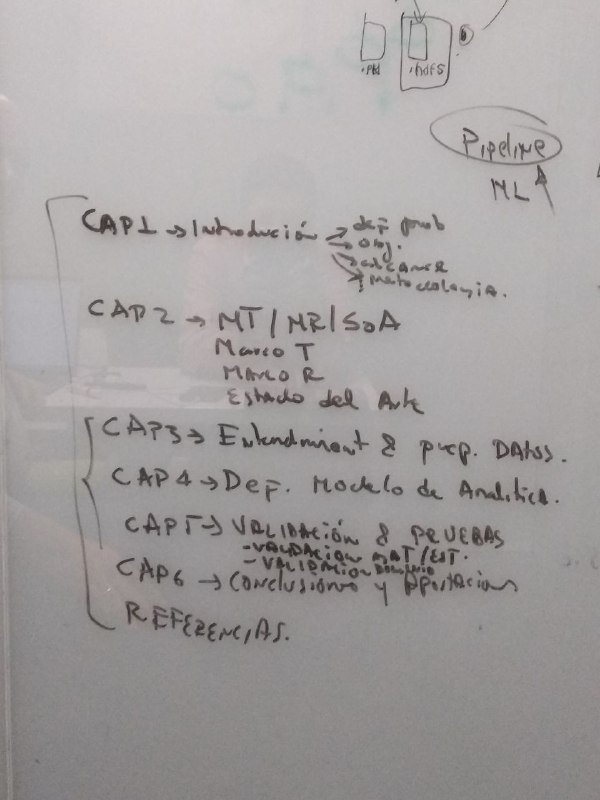 Pipeline
ML
CAP1 → Introdución → def prob
→ obj.
→ alcance
→ metodología.
CAP2 → MT/MR/SDA
Marco T
Marco R
Estado del Arte
CAP3 → Entendimient & prep. DATOS.
CAP4 → Def. Modelo de Analítica.
CAP5 → VALIDACIÓN & PRUEBAS
- VALIDACION MAT/EST.
- VALIDACION DOMINIO
CAP6 → Conclusiones y Aportacions
REFERENCIAS.